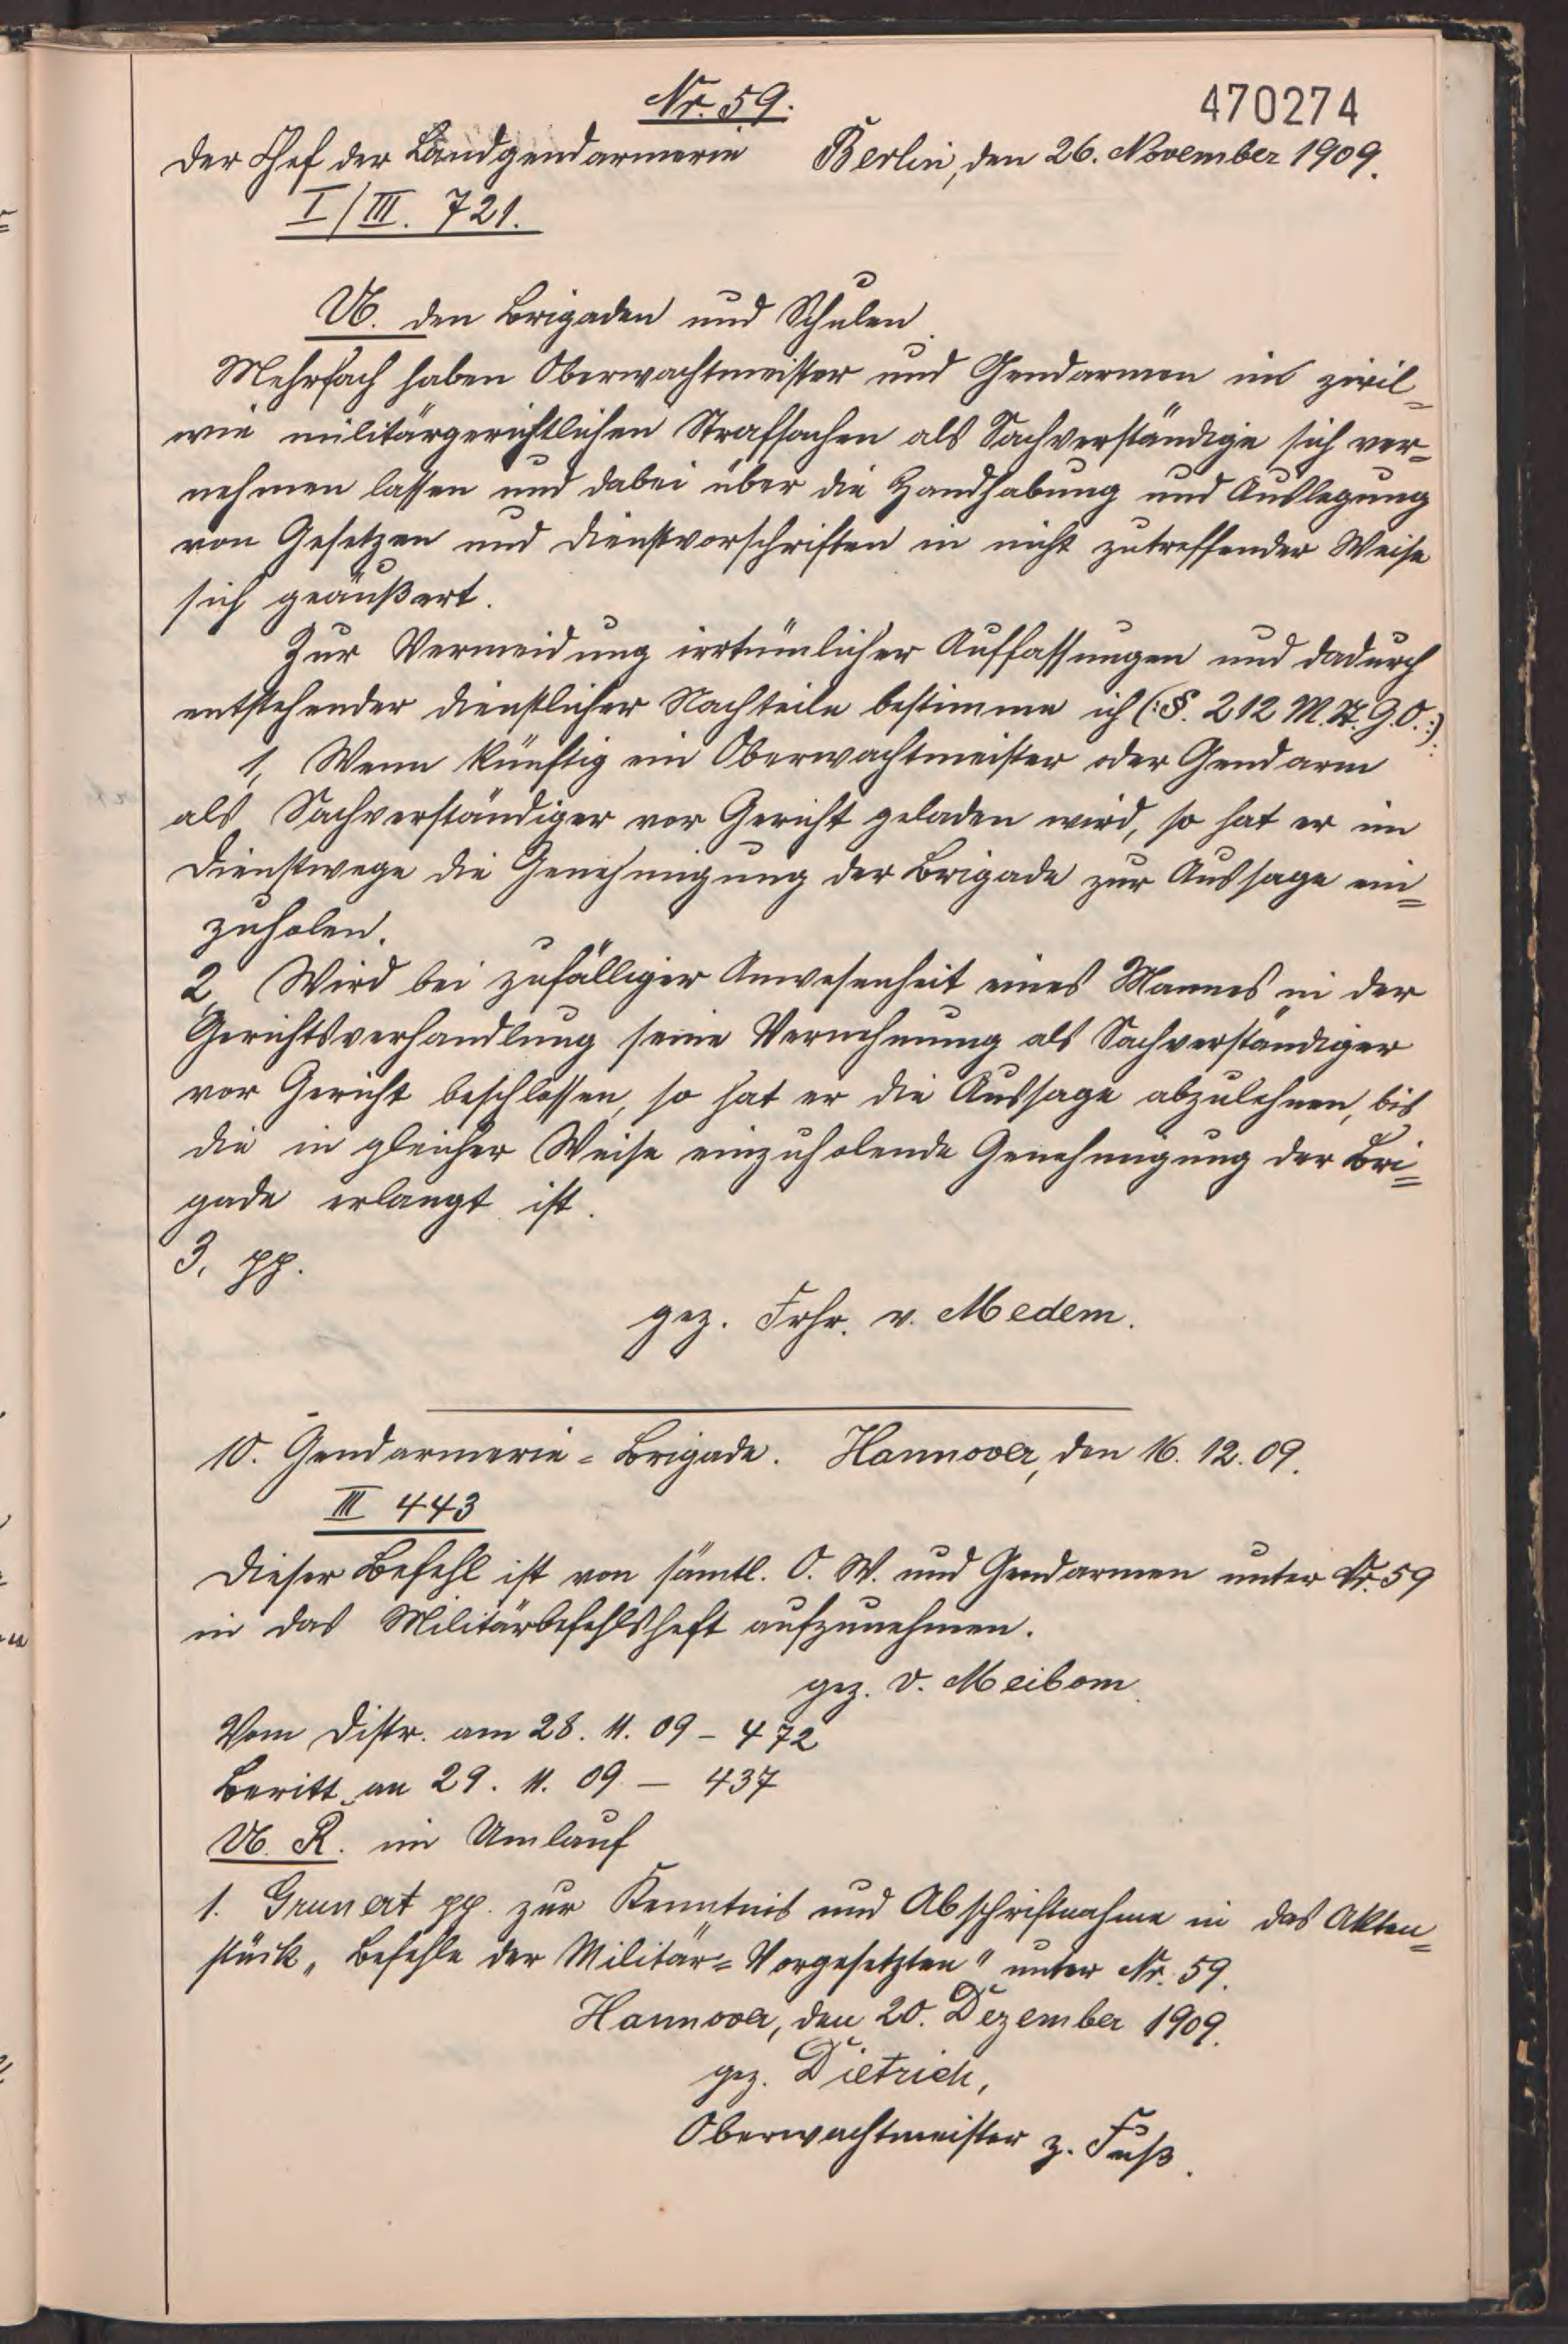 Nr. 59.
470274
Der Chef der Landgendarmerie Berlin, den 26. November 1909.
I/III. 721.
U. den Brigaden und Schulen.
Mehrfach haben Oberwachtmeister und Gendarmen in zivil-
wie militärgerichtlichen Strafsachen als Sachverständige sich ver-
nehmen lassen und dabei über die Handhabung und Auslegung
von Gesetzen und Dienstvorschriften in nicht zutreffender Weise
sich geäußert.
Zur Vermeidung irrtümlicher Auffassungen und dadurch
entstehender dienstlicher Nachteile bestimme ich (:§. 212 M.St.G.O.:)
1, Wenn künftig ein Oberwachtmeister oder Gendarm
als Sachverständiger vor Gericht geladen wird, so hat er im
Dienstwege die Genehmigung der Brigade zur Aussage ein=
zuholen.
2, Wird bei zufälliger Anwesenheit eines Mannes in der
Gerichtsverhandlung seine Vernehmung als Sachverständiger
vor Gericht beschlossen, so hat er die Aussage abzulehnen, bis
die in gleicher Weise einzuholende Genehmigung der Bri=
gade erlangt ist.
3, pp.
gez. Frhr. v. Medem.
10. Gendarmerie=Brigade. Hannover, den 16. 12. 09.
III 443
Dieser Befehl ist von sämtl. O. W. und Gendarmen unter Nr. 59
in das Militärbefehlsheft aufzunehmen.
gez. v. Meibom.
Vom Distr. am 28. 11. 09 – 472
Beritt an 29. 11. 09 – 437
U. R. im Umlauf
1. Grunert pp. zur Kenntnis und Abschriftnahme in das Akten=
stück „Befehle der Militär=Vorgesetzten" unter Nr. 59.
Hannover, den 20. Dezember 1909.
gez. Dietrich,
Oberwachtmeister z. Fuß.